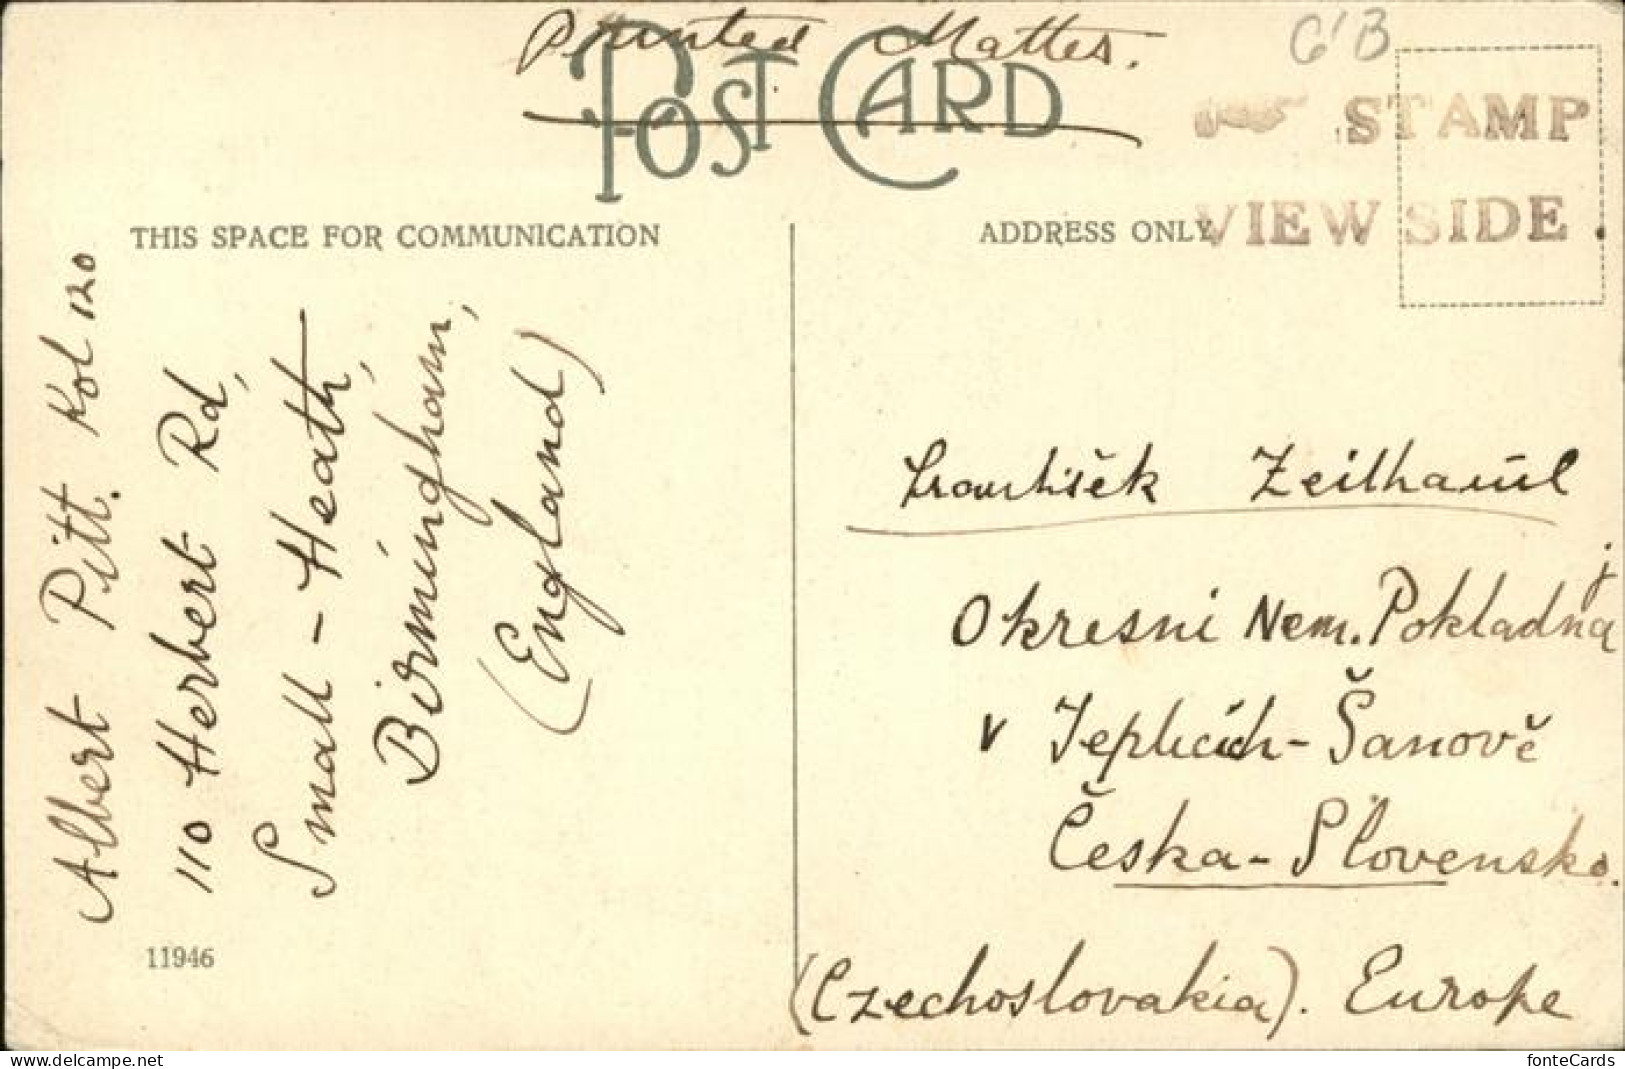 Printed Matter.
G'B
POST CARD
STAMP
VIEW SIDE.
THIS SPACE FOR COMMUNICATION
ADDRESS ONLY
Albert Pitt. Kol 120
110 Herbert Rd,
Small-Heath,
Birmingham,
(England)
11946
František Zeithaml
Okresni Nem. Pokladna
v Teplicich-Šanově
Česka-Slovensko.
(Czechoslovakia). Europe
fonteCards
delcampe.net